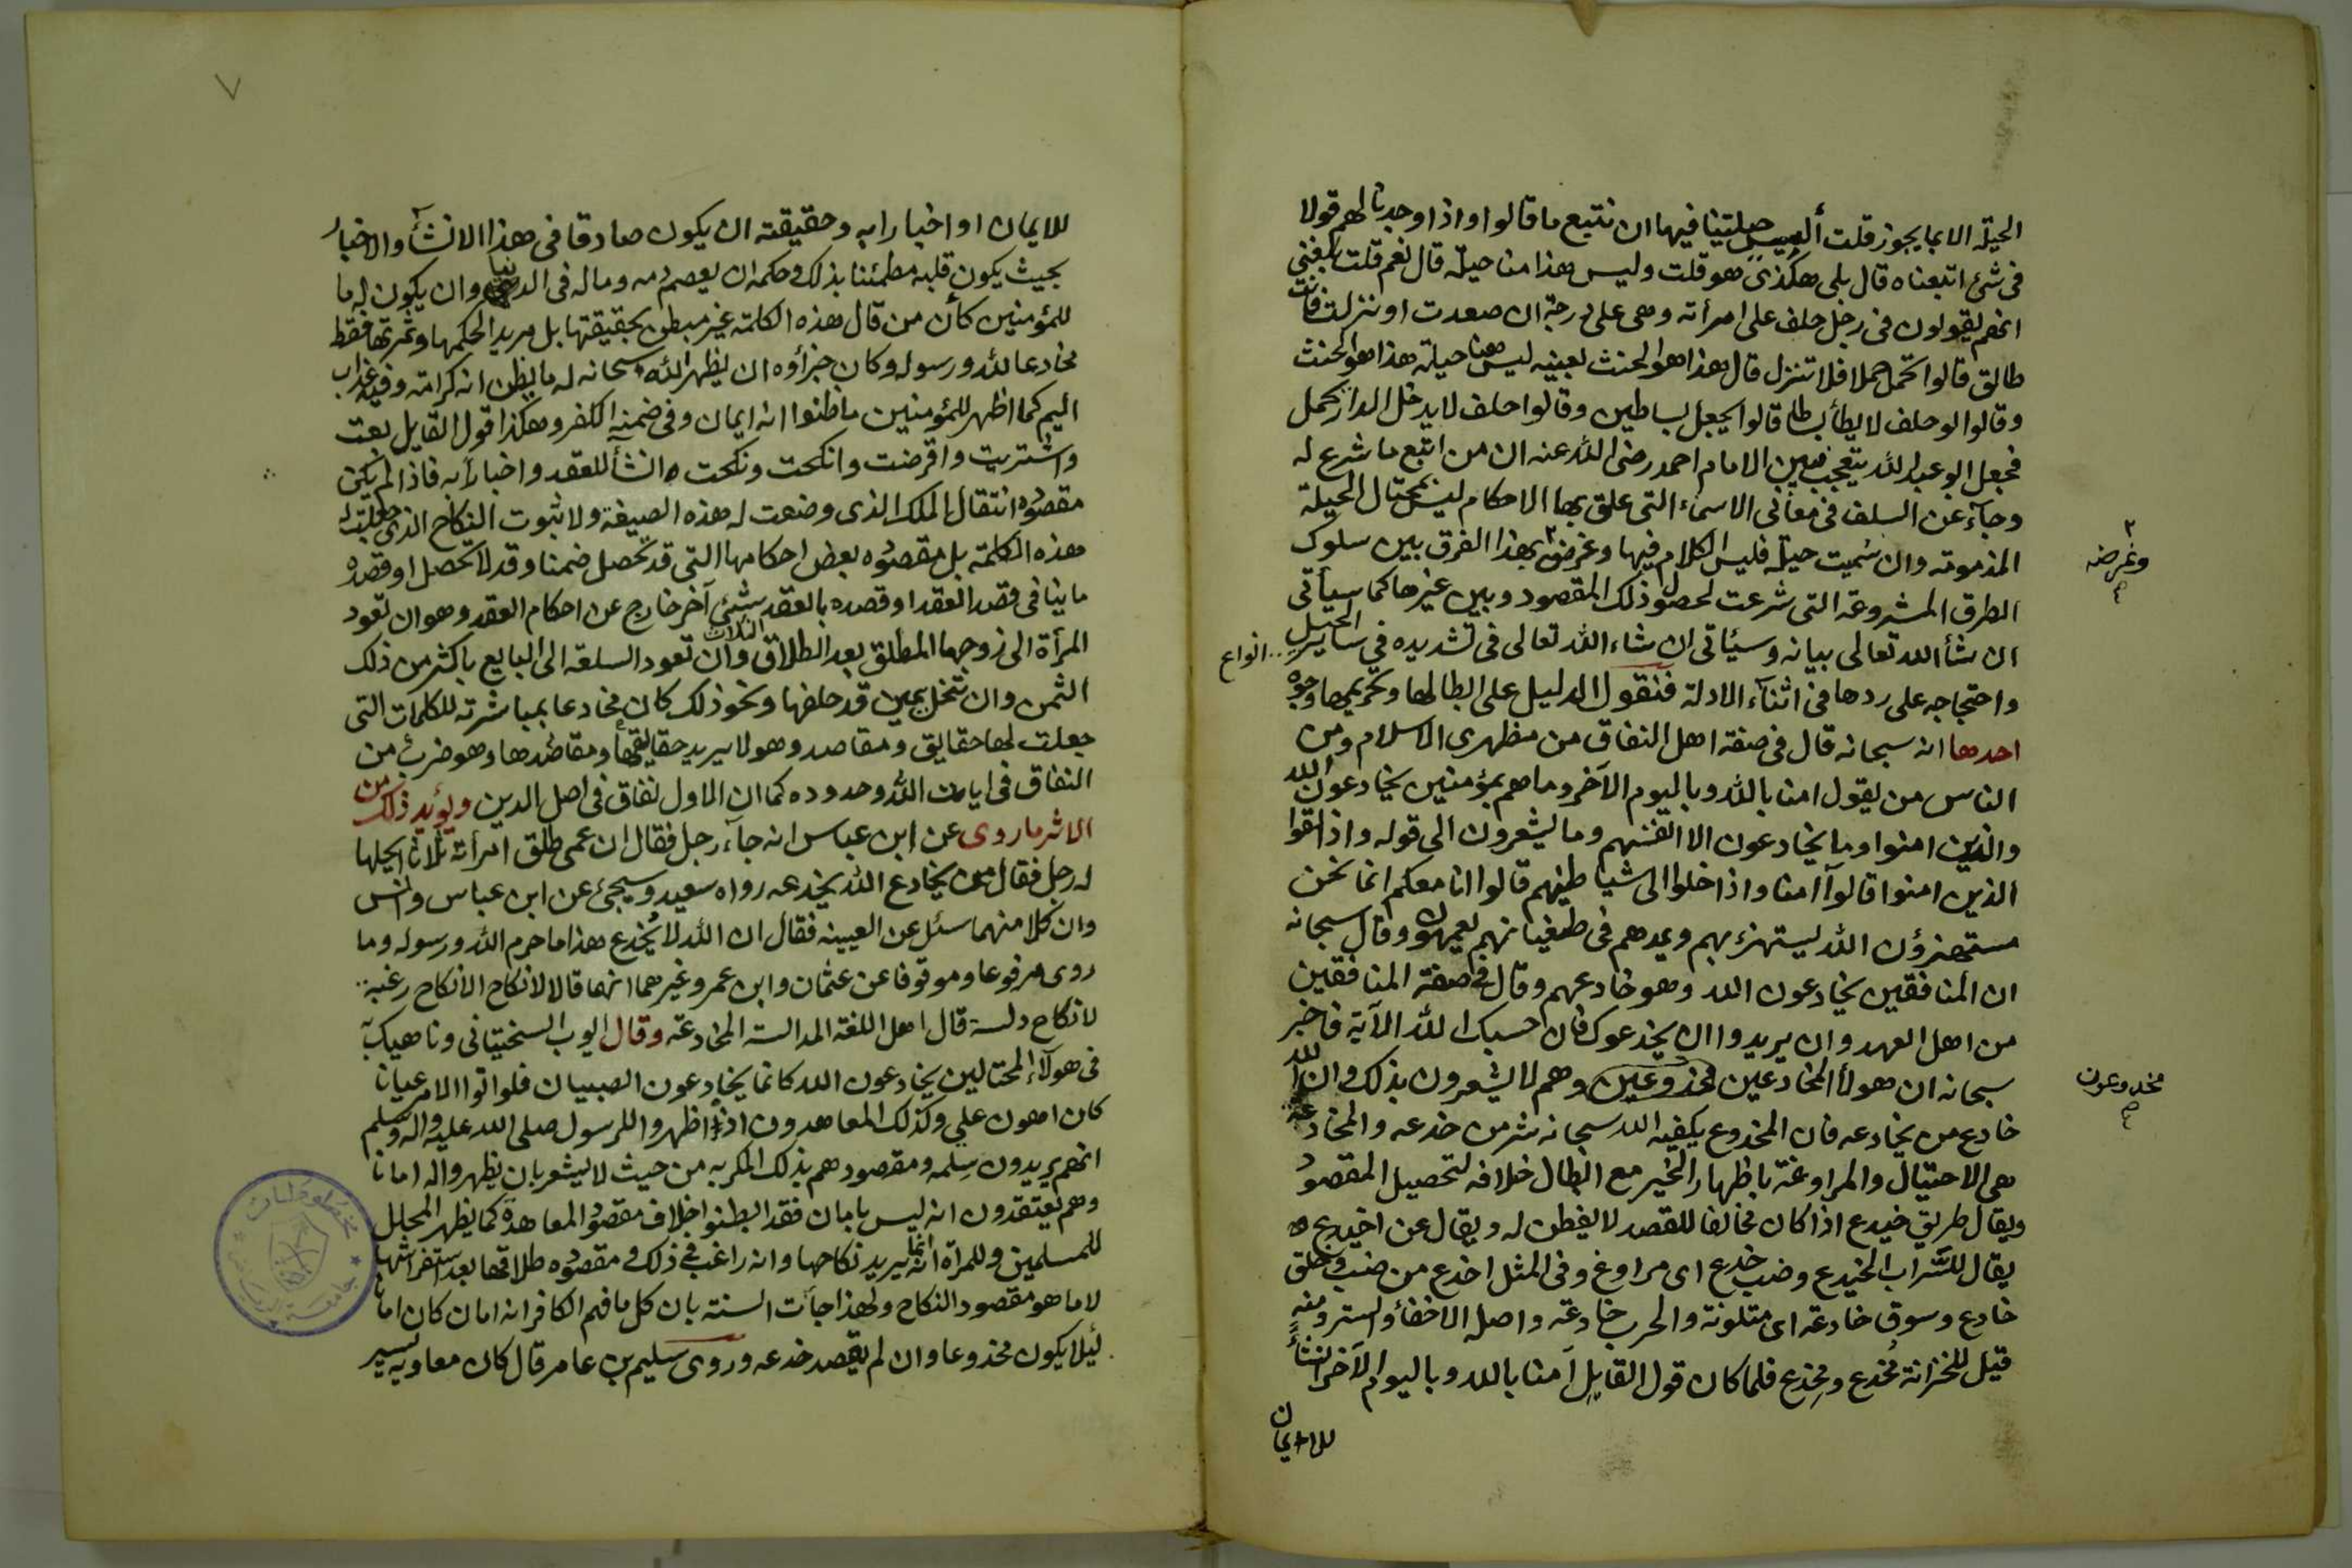 الحيلة الا بما يجوز قلت أليس حيلتنا فيها ان نتبع ما قالوا واذا وجدنا لهم قولا
فى شئ اتبعناه قال بلى هكذى هو قلت وليس هذا منا حيلة قال نعم قلت بلغنى
انهم يقولون فى رجل حلف على امرأته وهى على درجة ان صعدت او نزلت فانت
طالق قالوا تحمل حملا فلا تنزل قال هذا هو الحنث بعينه ليس هنا حيلة هذا هو الحنث
وقالوا لو حلف لا يطأ بساطا قالوا يجعل بساطين وقالوا حلف لا يدخل الدار يحمل
فجعل ابو عبد الله يتعجب فبين الامام احمد رضى الله عنه ان من اتبع ما شرع له
وجآء عن السلف فى معانى الاسماء التى علق بها الاحكام ليس بمحتال الحيلة
المذمومة وان سميت حيلة فليس الكلام فيها وغرضه بهذا الفرق بين سلوك
وغرضه
الطرق المشروعة التى شرعت لحصول ذلك المقصود وبين غيرها كما سيأتى
ان شأ الله تعالى بيانه وسيئاتى ان شاء الله تعالى فى تشديده فى ساير الحيل
انواع
واحتجاجه على ردها فى اثنآء الادلة فنقول الدليل على ابطالها وتحريمها وجوه
احدها انه سبحانه قال فى صفة اهل النفاق من مظهرى الاسلام ومن
الناس من يقول امنا بالله وباليوم الآخر وما هم بمؤمنين يخادعون الله
والذين امنوا وما يخادعون الا انفسهم وما يشعرون الى قوله واذا لقوا
الذين امنوا قالوآ امنا واذا خلوا الى شياطينهم قالوا انا معكم انما نحن
مستهزؤن الله يستهزء بهم ويمدهم فى طغيانهم يعمهون وقال سبحانه
ان المنافقين يخادعون الله وهو خادعهم وقال فى صفة المنافقين
من اهل العهد وان يريدوا ان يخدعوك فان حسبك الله الآية فاخبر
سبحانه ان هولأ المخادعين مخذوعين وهم لا يشعرون بذلك وان الله
مخدوعون
خادع من يخادعه فان المخدوع يكفيه الله سبحانه شر من خدعه والمخادعة
هى الاحتيال والمراوغة باظهار الخير مع ابطال خلافه لتحصيل المقصود
ويقال طريق خيدع اذا كان مخالفا للقصد لا يفطن له ويقال عن اخيدع
يقال للسّراب الخيدع وضب خدع اى مراوغ وفى المثل اخدع من ضب وخلق
خادع وسوق خادعة اى متلونة والحرب خادعة واصله الاخفأ والستر ومنه
قيل للخزانة مُخدع ومِخدع فلما كان قول القايل آمنا بالله وباليوم الآخر انشأ
للايمان
٧
للايمان او اخبارا به وحقيقته ان يكون صادقا فى هذا الانشآء والاخبار
بحيث يكون قلبه مطمئنا بذلك وحكمه ان يعصم دمه وماله فى الدنيا وان يكون له ما
للمؤمنين كأن من قال هذه الكلمة غير مبطن بحقيقتها بل مريد الحكمها وثمرتها فقط
مخادعا لله ورسوله وكان جزأوه ان يظهر الله سبحانه له ما يظن انه كرامة وفيه عذاب
اليم كما اظهر للمؤمنين ما ظنوا انه ايمان وفى ضمنه الكفر وهكذا قول القايل بعت
واشتريت واقرضت وانكحت ونكحت انشأ للعقد واخبارآ به فاذا لم يكن
مقصوده انتقال الملك الذى وضعت له هذه الصيغة ولا ثبوت النكاح الذى جعلت له
هذه الكلمة بل مقصوده بعض احكامها التى قد تحصل ضمنا وقد لا تحصل او قصده
ما ينافى قصد العقد او قصده بالعقد شئى آخر خارج عن احكام العقد وهو ان تعود
المرأة الى زوجها المطلق بعد الطلاق الثلاث وان تعود السلعة الى البايع باكثر من ذلك
الثمن وان تنحل يمين قد حلفها ونحو ذلك كان مخادعا بمباشرته للكلمات التى
جعلت لها حقايق ومقاصد وهو لا يريد حقايقها ومقاصدها وهو ضرب من
النفاق فى ايات الله وحدوده كما ان الاول نفاق فى اصل الدين ويؤيد ذلك من
الاثر ما روى عن ابن عباس انه جآء رجل فقال ان عمى طلق امرأته ثلاثا ايحلها
له رجل فقال من يخادع الله يخدعه رواه سعيد وسيجئ عن ابن عباس وانس
وان كلا منهما سئل عن العيينه فقال ان الله لا يُخدع هذا ما حرم الله ورسوله وما
روى مرفوعا وموقوفا عن عثمان وابن عمر وغيرهما انهما قالا لا نكاح الا نكاح رغبة
لا نكاح دلسة قال اهل اللغة المدالسة المخادعة وقال ايوب السختيانى وناهيك به
فى هولآء المحتالين يخادعون الله كانما يخادعون الصبيان فلو اتوا الامر عيانا
كان اهون علي وكذلك المعاهدون اذا اظهروا للرسول صلى الله عليه واله وسلم
انهم يريدون سِلمه ومقصودهم بذلك المكر به من حيث لا يشعر بان يظهروا له امانا
وهم يعتقدون انه ليس بامان فقد ابطنوا خلاف مقصود المعاهدة كما يظهر المحلل
للمسلمين وللمرآة انه انما يريد نكاحها وانه راغب فى ذلك ومقصوده طلاقها بعد استفراشها
لا ما هو مقصود النكاح ولهذا جآت السنة بان كل ما فهم الكافر انه امان كان امانا
لئلا يكون مخذوعا وان لم يقصد خدعه وروى سليم بن عامر قال كان معاويه يسير